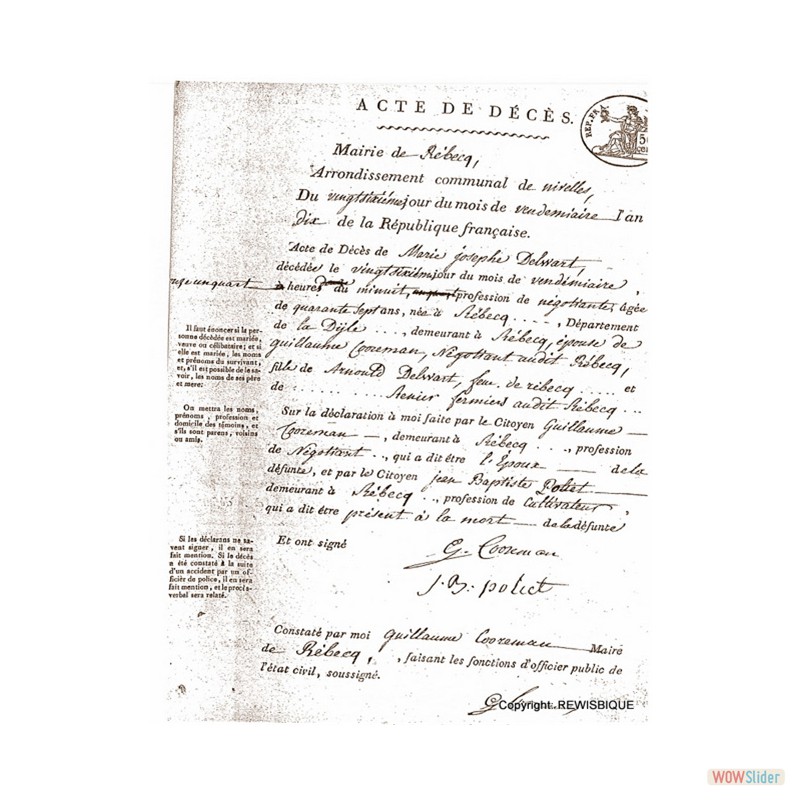 ACTE DE DÉCÈS.
REP. FRA
Mairie de Rébecq,
Arrondissement communal de nivelles,
Du vingtsixième jour du mois de vendemiaire l'an
dix de la République française.
Acte de Décès de Marie josephe Delwart,
décédée le vingtsixième jour du mois de vendémiaire,
à heures du minuit, profession de négotiante, âgée
de quarante sept ans, née à Rébecq ...., Département
de la Dyle ...., demeurant à Rébecq, épouse de
guillaume Coozeman, Négotiant audit Rébecq,
fille de Arnould Delwart, feu. de rébecq ..... et
de ........ Renier fermiers audit Rébecq ...
Sur la déclaration à moi faite par le Citoyen Guillaume —
Coozeman —, demeurant à Rébecq ..., profession
de Négotiant .., qui a dit être l'Epoux — de la
défunte, et par le Citoyen jean Baptiste Poliet —
demeurant à Rébecq .., profession de Cultivateur,
qui a dit être présent à la mort — de la défunte
Et ont signé
G. Coozeman
J. B. poliet
Constaté par moi Guillaume Coozeman — Maire
de Rébecq, , faisant les fonctions d'officier public de
l'état civil, soussigné.
Il faut énoncer si la per-
sonne décédée est mariée,
veuve ou célibataire; et si
elle est mariée, les noms
et prénoms du survivant,
et, s'il est possible de le sa-
voir, les noms de ses père
et mere:
On mettra les noms,
prénoms, profession et
domicile des témoins, et
s'ils sont parens, voisins
ou amis.
Si les déclarans ne sa-
vent signer, il en sera
fait mention. Si le décès
a été constaté à la suite
d'un accident par un of-
ficier de police, il en sera
fait mention, et le procès-
verbal sera relaté.
Copyright: REWISBIQUE
WOWSlider